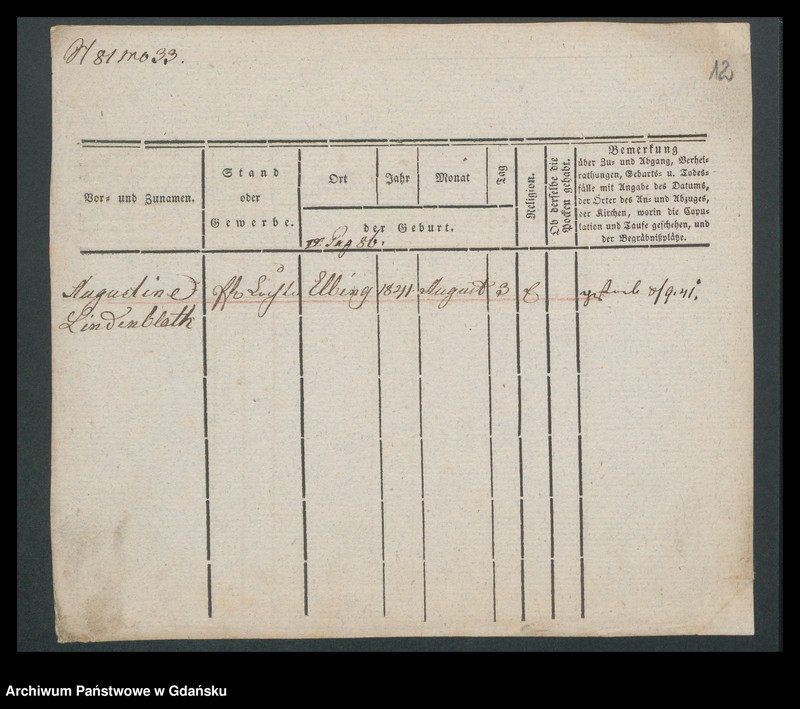 81 no 33.
12
Vor- und Zunamen.
Stand
oder
Gewerbe.
Ort
Jahr
Monat
Tag
der Geburt.
Pag 86.
Religion.
Ob derselbe die
Pocken gehabt.
Bemerkung
über Zu- und Abgang, Verhei-
rathungen, Geburts- u. Todes-
fälle mit Angabe des Datums,
der Örter des An- und Abzuges,
der Kirchen, worin die Copu-
lation und Taufe geschehen, und
der Begräbnißplätze.
Augustine Elbing 1841 August 3 8/9.41.
Lindenblath
Archiwum Państwowe w Gdańsku